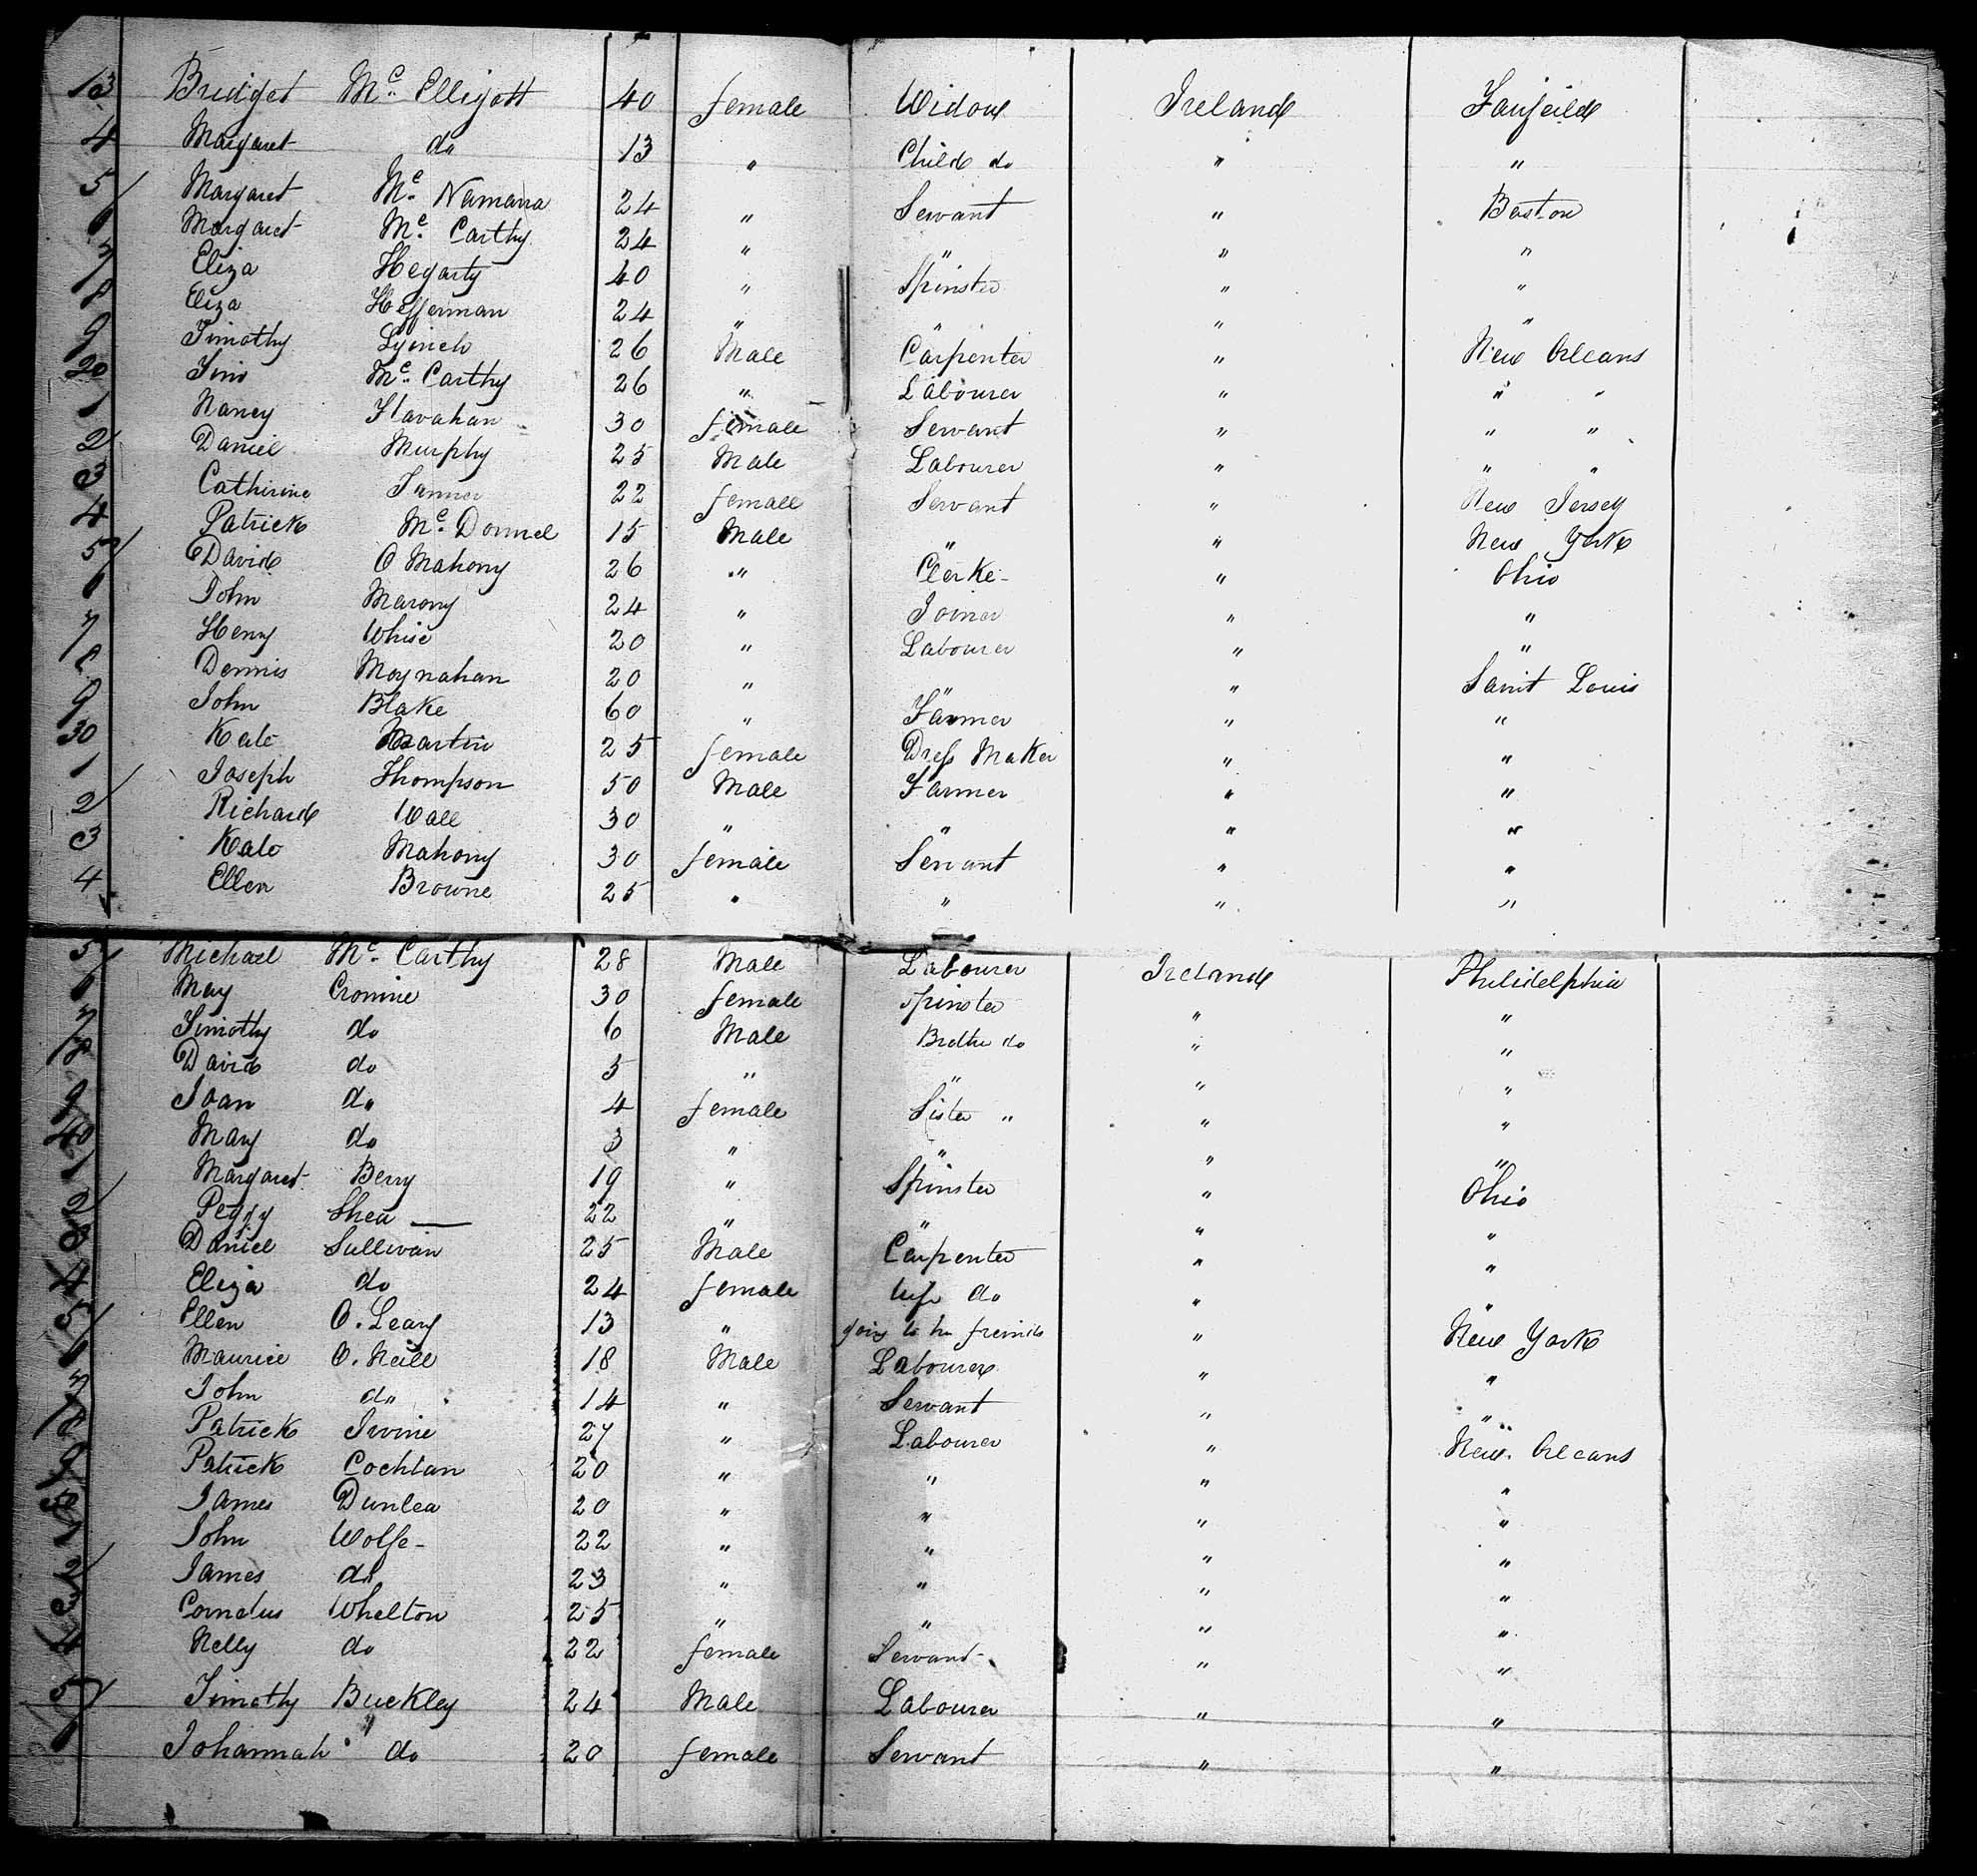 13 Bridget Mc. Elligott 40 female Widow Ireland Fairfeild
4 Margaret do 13 " Child do " "
5 Margaret Mc. Namara 24 " Servant " Boston
6 Margaret Mc. Carthy 24 " " " "
7 Eliza Hegarty 40 " Spinster " "
8 Eliza Hefferman 24 " " " "
9 Timothy Lyinch 26 Male Carpenter " New Orleans
20 Tim Mc. Carthy 26 " Labourer " " "
1 Nancy Flavahan 30 female Servant " " "
2 Daniel Murphy 25 Male Labourer " " "
3 Catherine Tanner 22 female Servant " New Jersey
4 Patrick Mc. Donnel 15 Male " " New York
5 David O Mahony 26 " Clerke " Ohio
6 John Marony 24 " Joiner " "
7 Henry White 20 " Labourer " "
8 Dennis Moynahan 20 " " " Sanit Louis
9 John Blake 60 " Farmer " "
30 Kate Martin 25 female Dress Maker " "
1 Joseph Thompson 50 Male Farmer " "
2 Richard Wall 30 " " " "
3 Kate Mahony 30 female Servant " "
4 Ellen Browne 25 " " " "
5 Michael Mc. Carthy 28 Male Labourer Ireland Philidelphia
6 May Cronine 30 female Spinster " "
7 Timothy do 6 Male Brother do " "
8 David do 5 " " " "
9 Joan do 4 female Sister " " "
40 Mary do 3 " " " "
1 Margaret Berry 19 " Spinster " Ohio
2 Peggy Shea 22 " " " "
3 Daniel Sullivan 25 Male Carpenter " "
4 Eliza do 24 female Wife do " "
5 Ellen O. Leary 13 " going to her freinds " New York
6 Maurice O. Neill 18 Male Labourer " "
7 John do 14 " Servant " "
8 Patrick Irvine 27 " Labourer " New Orleans
9 Patrick Cochlan 20 " " " "
50 James Dunlea 20 " " " "
1 John Wolfe 22 " " " "
2 James do 23 " " " "
3 Cornelus Whelton 25 " " " "
4 Nelly do 22 female Servant " "
5 Timothy Buckley 24 Male Labourer " "
6 Johannah do 20 female Servant " "